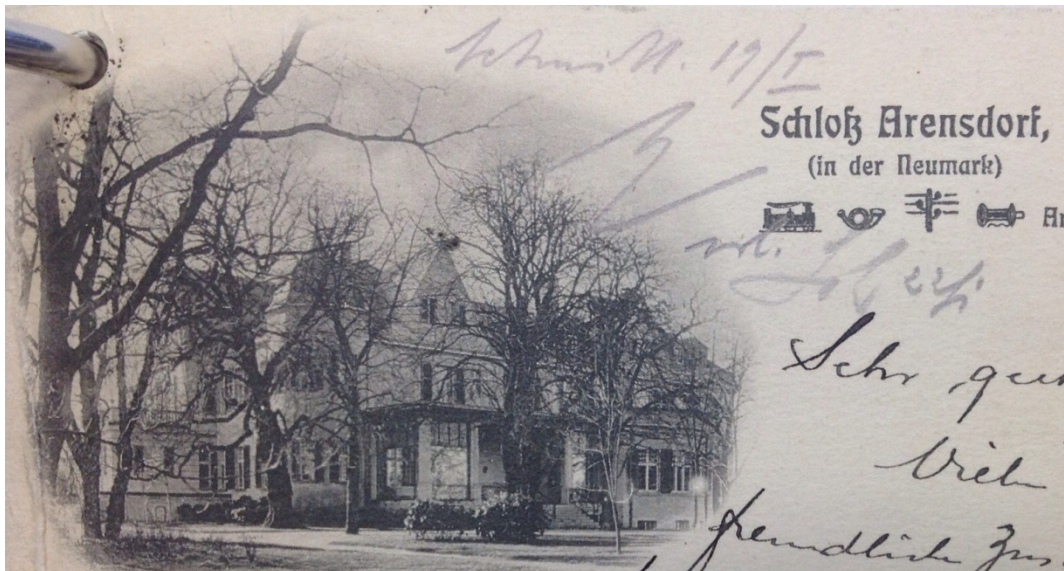 Schmidt. 19/I
Schloß Arensdorf,
(in der Neumark)
Ar
22/I
Sehr gee
Viel
freundliche Zus